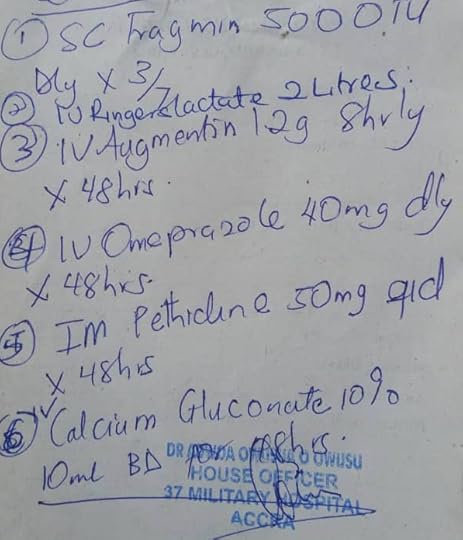 ① SC Fragmin 5000IU
Dly X 3/7
② IV Ringers lactate 2 Litres.
③ IV Augmentin 1.2g 8hrly
X 48hrs.
④ IV Omeprazole 40mg dly
X 48hrs.
⑤ IM Pethidine 50mg qid
X 48hrs
⑥ IV Calcium Gluconate 10%
10ml BD for 48hrs.
DR OWUSU
HOUSE OFFICER
37 MILITARY HOSPITAL
ACCRA